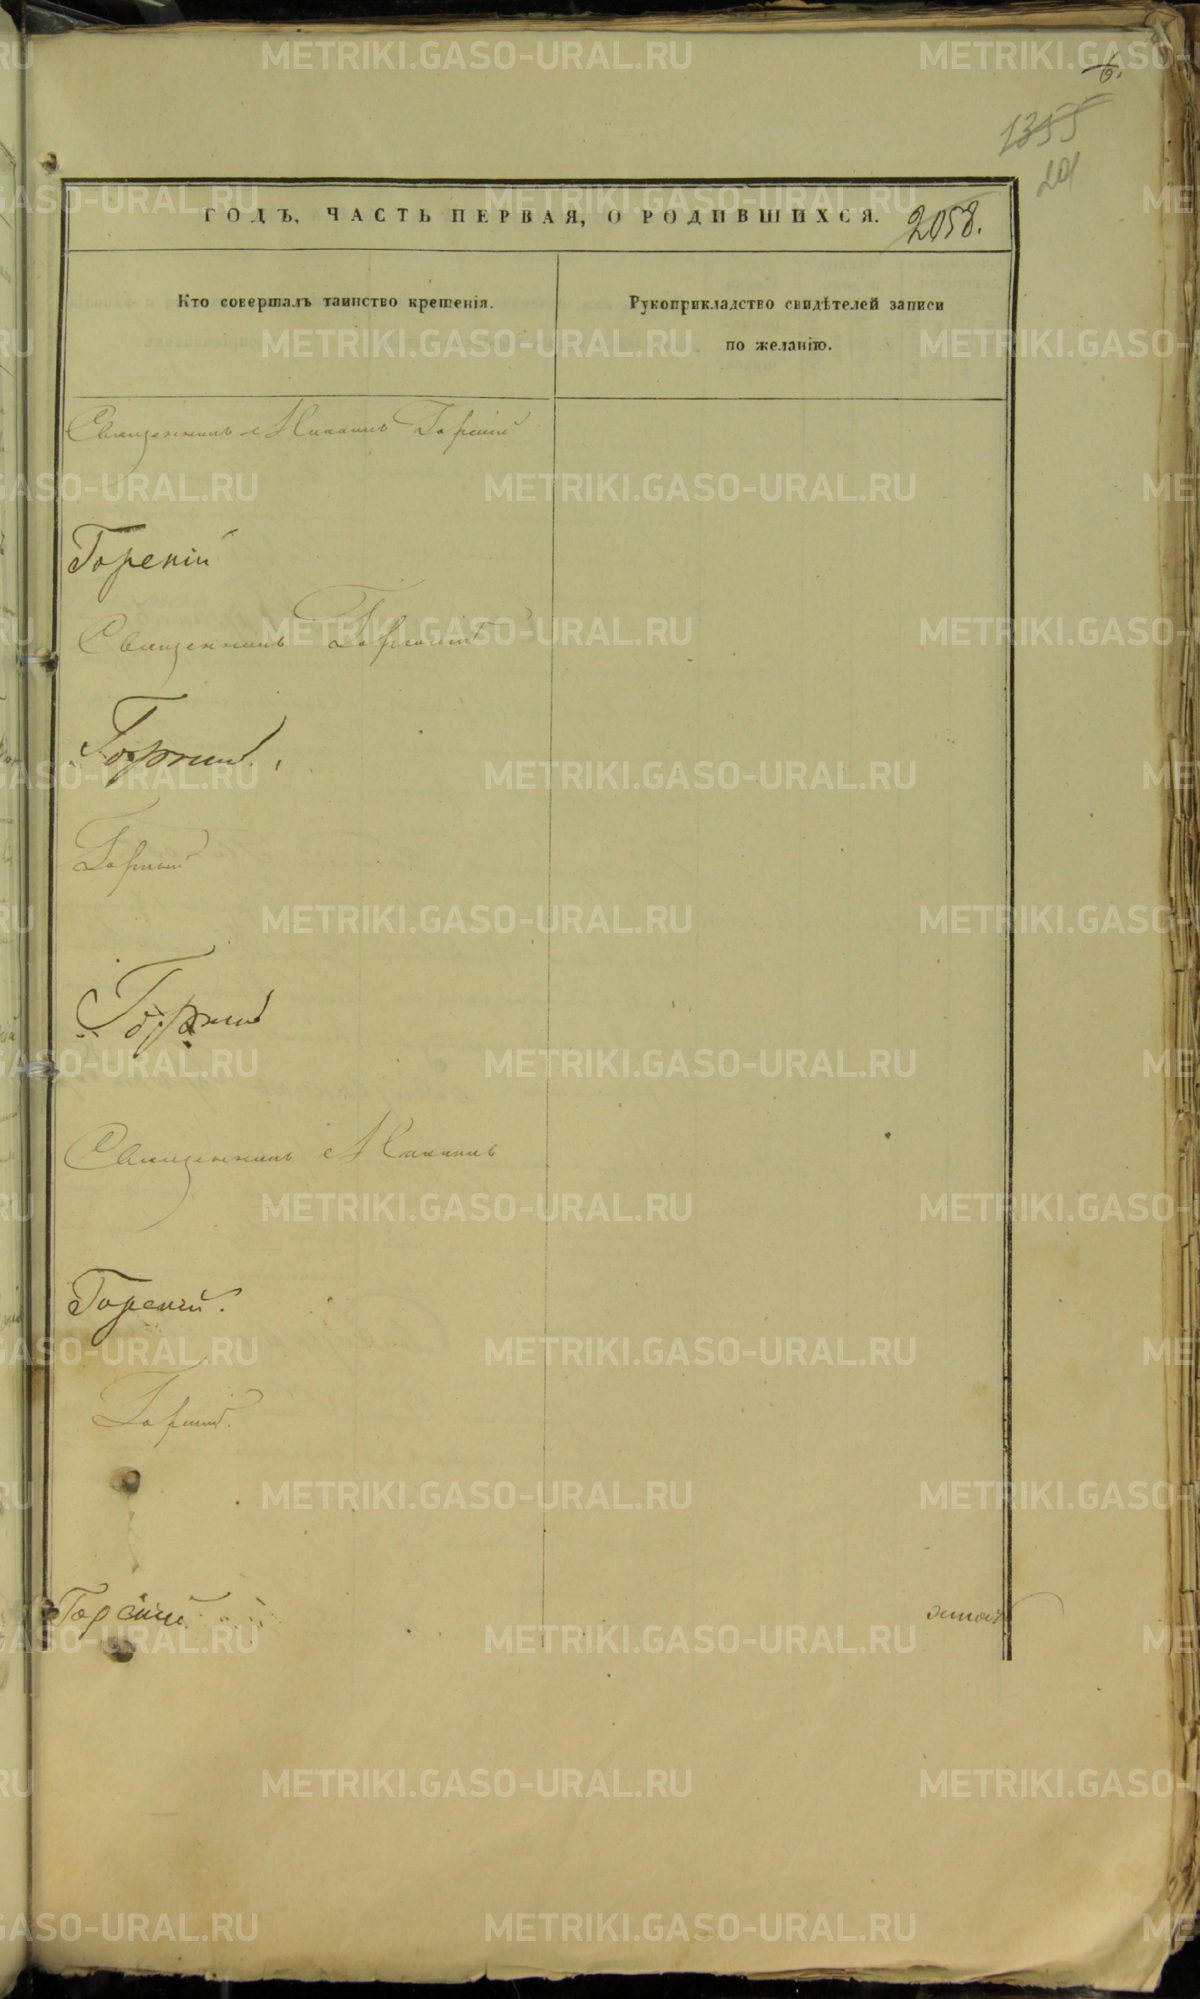 6.
1355
201
ГОДЪ, ЧАСТЬ ПЕРВАЯ, О РОДИВШИХСЯ. 2058.
Кто совершалъ таинство крещенія.
Рукоприкладство свидѣтелей записи
по желанію.
Священникъ Михаилъ Горскій
Горскій
Священникъ Горскій
Горскій.
Горскій
Горскій
Священникъ Михаилъ
Горскій.
Горскій.
Горскій
METRIKI.GASO-URAL.RU